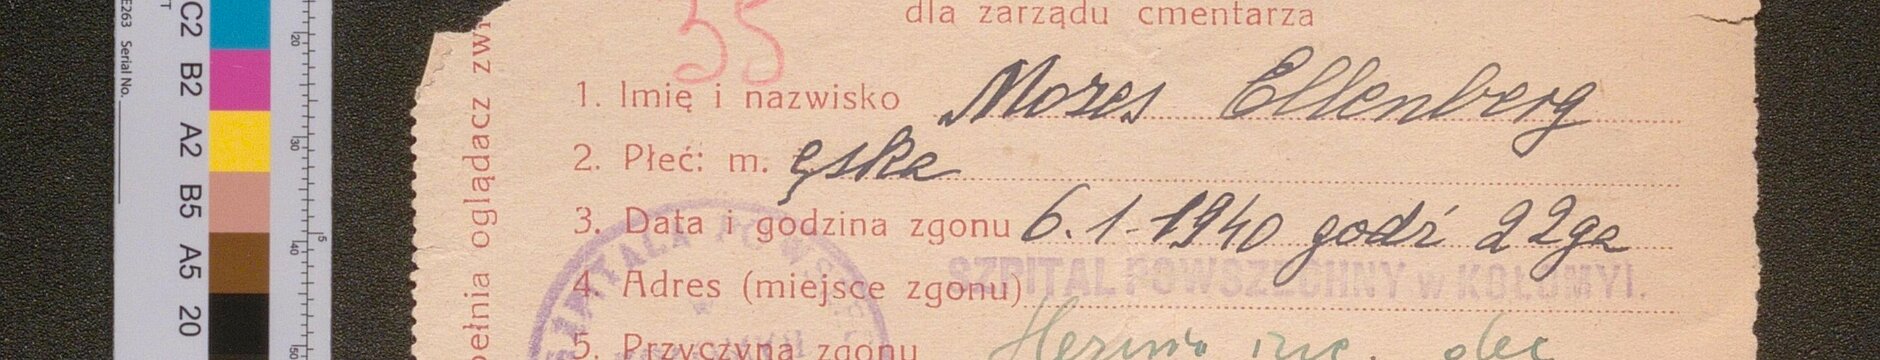 dla zarządu cmentarza
35
1. Imię i nazwisko Mozes Ellenberg
2. Płeć: m. ęska
3. Data i godzina zgonu 6.1-1940 godź 22ga
4. Adres (miejsce zgonu) SZPITAL POWSZECHNY w KOŁOMYI.
5. Przyczyna zgonu Hernia inc.
ełnia oglądacz zw
SZPITALA POWSZ
E263 Serial No.
C2 B2 A2 B5 A5 20
20 30 40 50
5